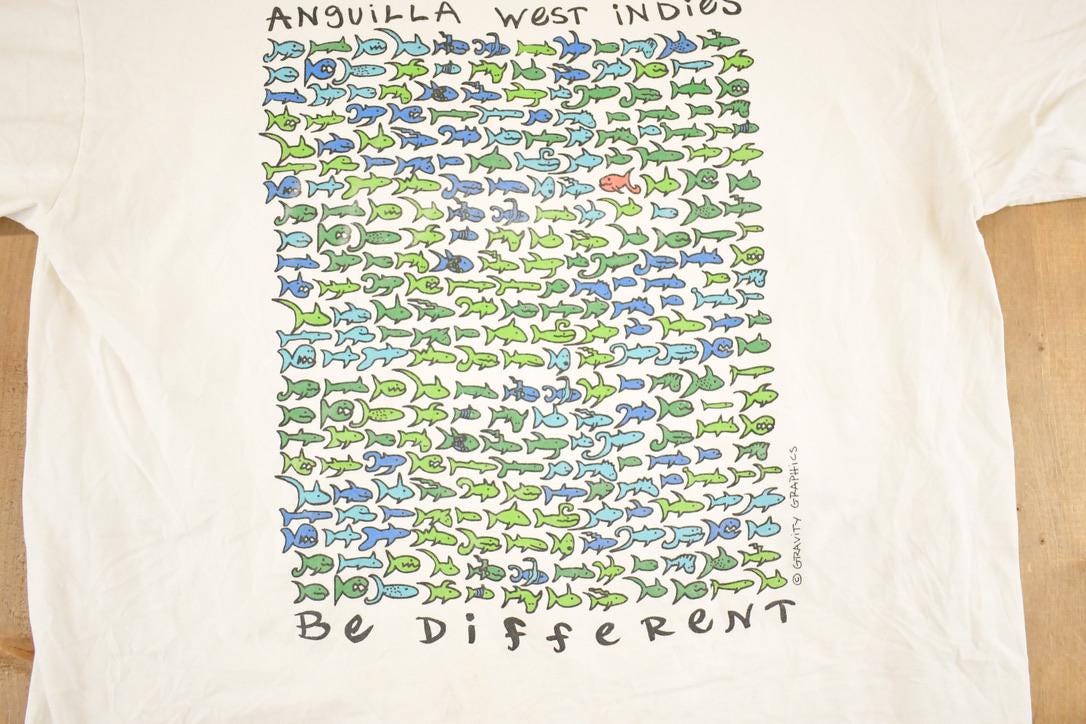 ANguiLLA West iNDies
© GRAVITY GRAPHICS
Be DiffeReNT